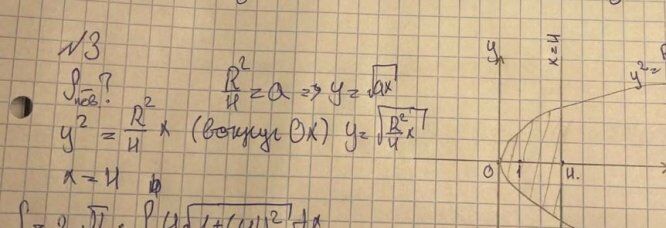 №3
S пов? R²/H = a => y = √ax
y² = R²/H x (вокруг Ox) y = √(R²/H x)
x = H
y
x = H
y² =
0 1 H